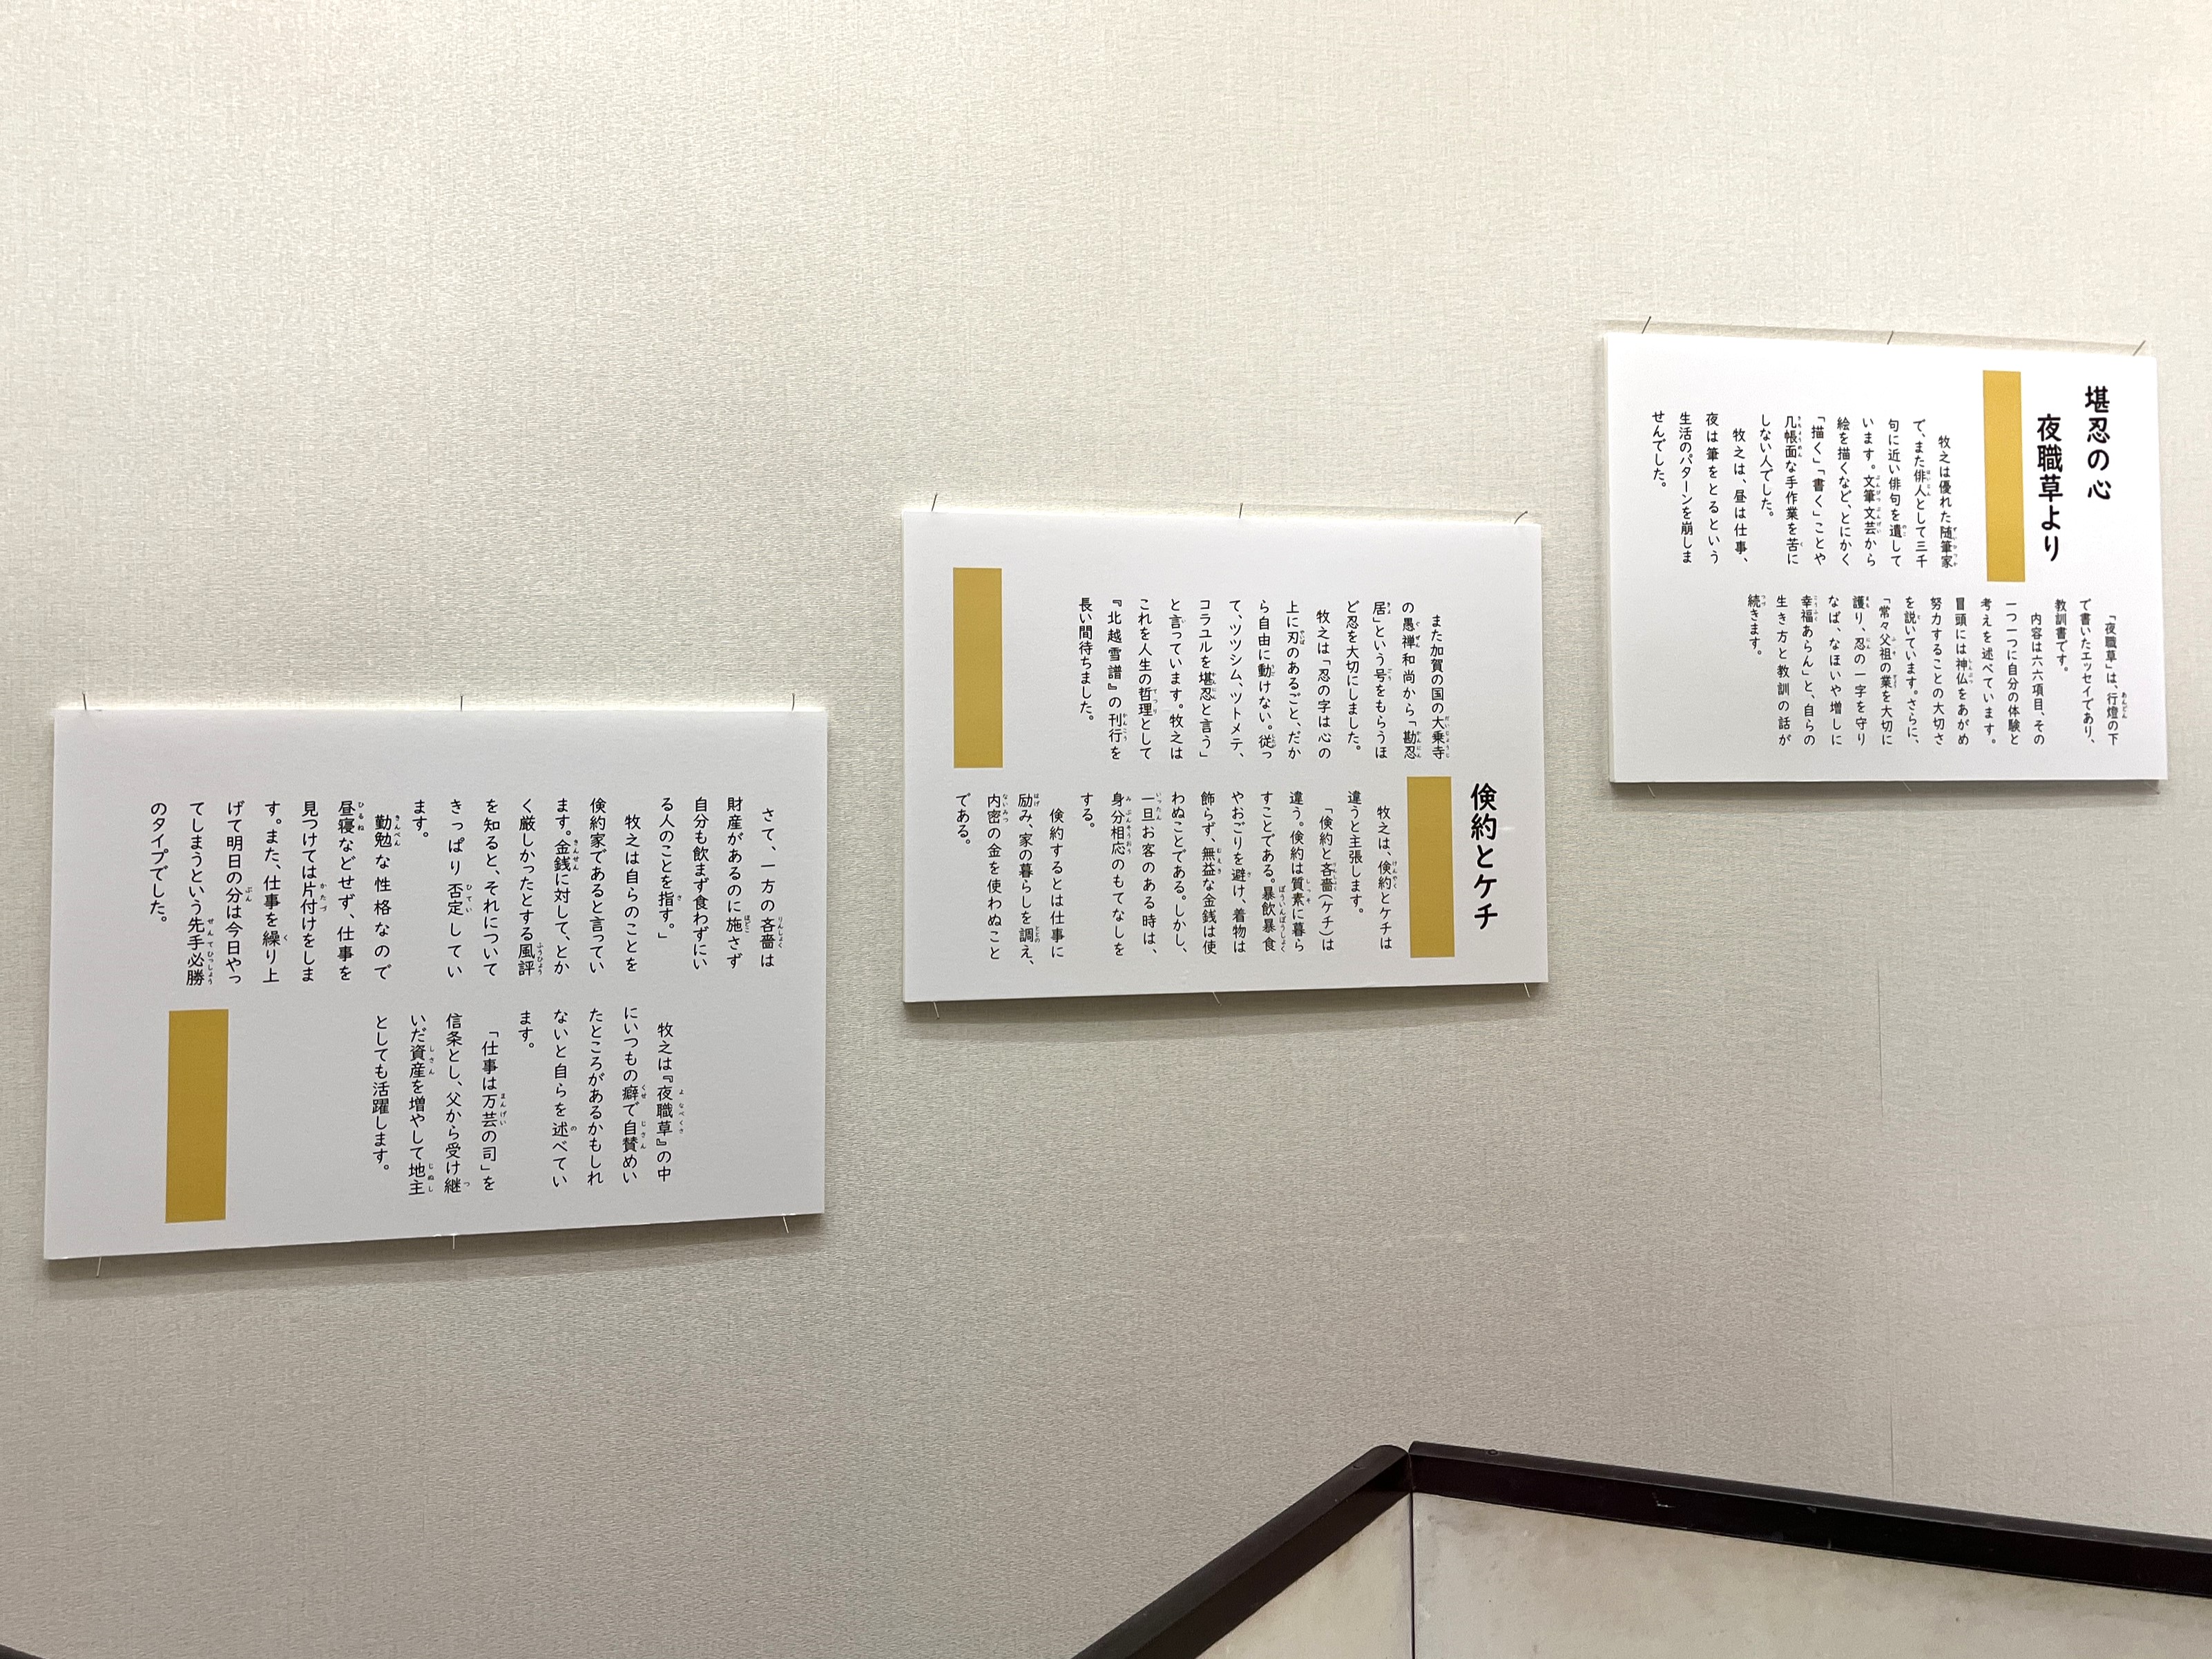 堪忍の心
夜職草より
牧之は優れた随筆家
で、また俳人として三千
句に近い俳句を遺して
います。文筆文芸から
絵を描くなど、とにかく
「描く」「書く」ことや
几帳面な手作業を苦に
しない人でした。
牧之は、昼は仕事、
夜は筆をとるという
生活のパターンを崩しま
せんでした。
「夜職草」は、行燈の下
で書いたエッセイであり、
教訓書です。
内容は六六項目、その
一つ一つに自分の体験と
考えを述べています。
冒頭には神仏をあがめ
努力することの大切さ
を説いています。さらに、
「常々父祖の業を大切に
護り、忍の一字を守り
なば、なほいや増しに
幸福あらん」と、自らの
生き方と教訓の話が
続きます。
また加賀の国の大乗寺
の愚禅和尚から「勘忍
居」という号をもらうほ
ど忍を大切にしました。
牧之は「忍の字は心の
上に刃のあるごと、だか
ら自由に動けない。従っ
て、ツツシム、ツトメテ、
コラユルを堪忍と言う」
と言っています。牧之は
これを人生の哲理として
『北越雪譜』の刊行を
長い間待ちました。
倹約とケチ
牧之は、倹約とケチは
違うと主張します。
「倹約と吝嗇(ケチ)は
違う。倹約は質素に暮ら
すことである。暴飲暴食
やおごりを避け、着物は
飾らず、無益な金銭は使
わぬことである。しかし、
一旦お客のある時は、
身分相応のもてなしを
する。
倹約するとは仕事に
励み、家の暮らしを調え、
内密の金を使わぬこと
である。
さて、一方の吝嗇は
財産があるのに施さず
自分も飲まず食わずにい
る人のことを指す。」
牧之は自らのことを
倹約家であると言ってい
ます。金銭に対して、とか
く厳しかったとする風評
を知ると、それについて
きっぱり否定してい
ます。
勤勉な性格なので
昼寝などせず、仕事を
見つけては片付けをしま
す。また、仕事を繰り上
げて明日の分は今日やっ
てしまうという先手必勝
のタイプでした。
牧之は『夜職草』の中
にいつもの癖で自賛めい
たところがあるかもしれ
ないと自らを述べてい
ます。
「仕事は万芸の司」を
信条とし、父から受け継
いだ資産を増やして地主
としても活躍します。